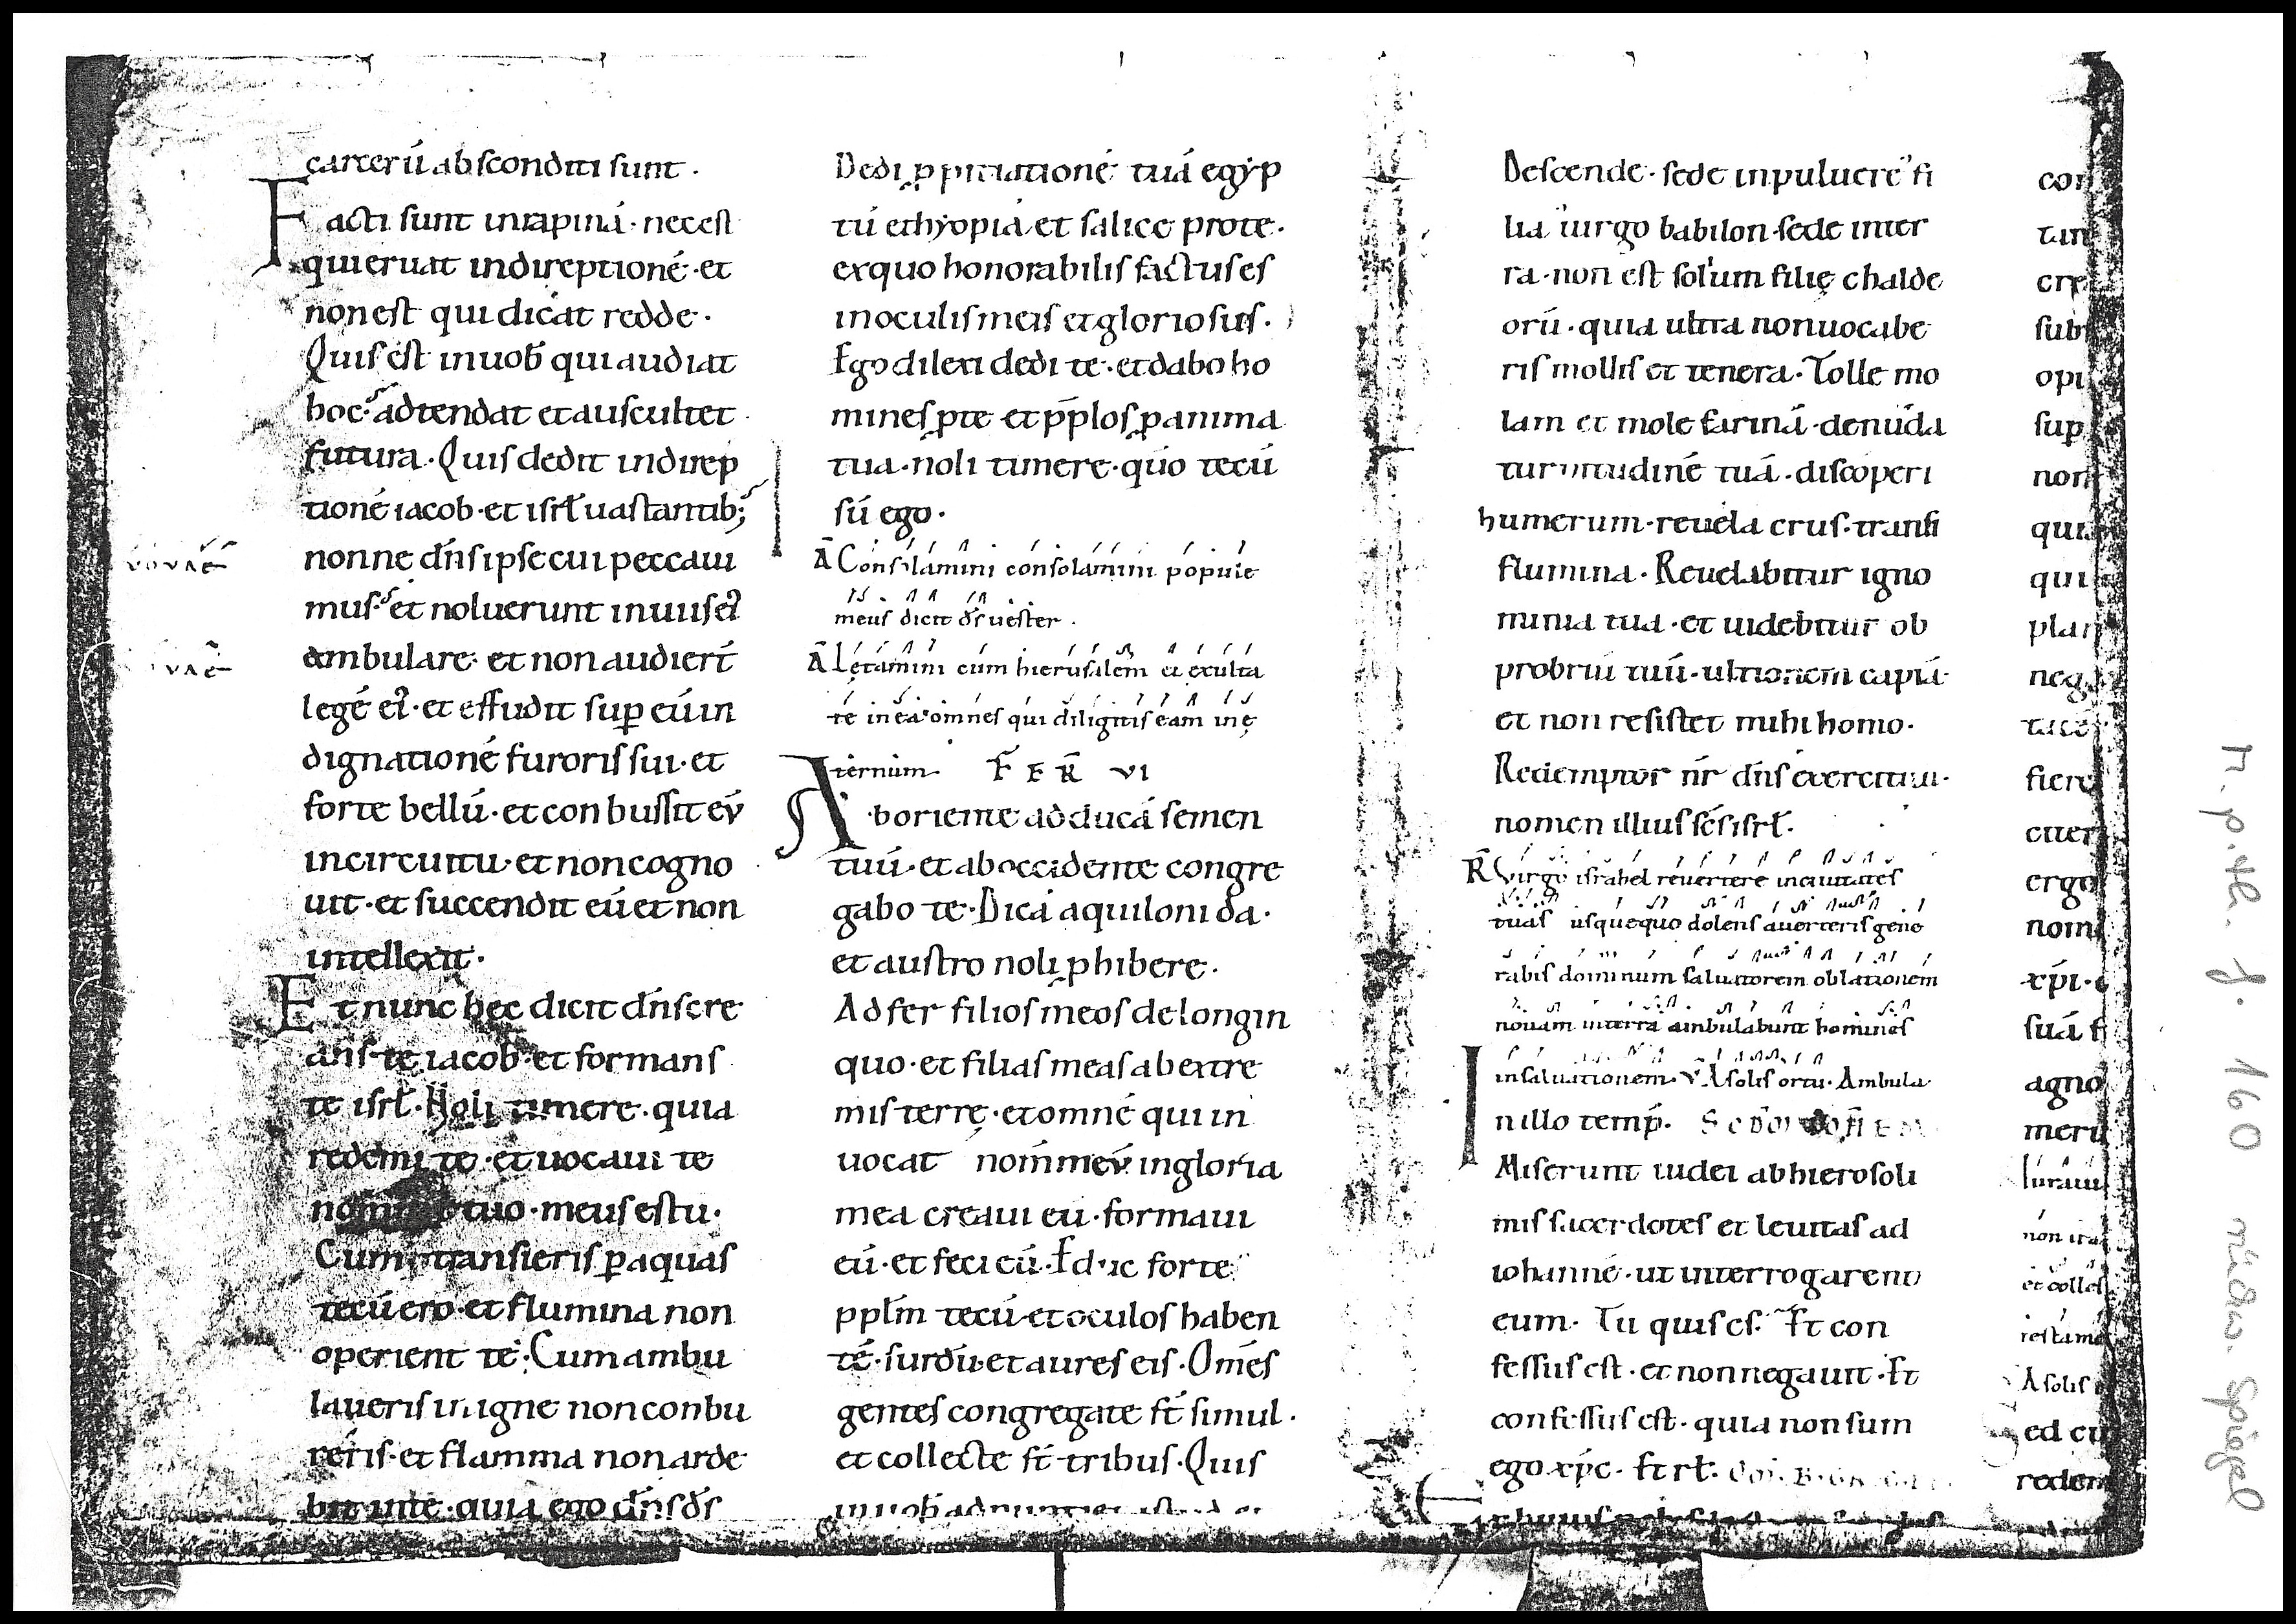 carcerū absconditi sunt ·
Facti sunt inrapinā · necest
quieruat indireptionē · et
nonest qui dicat redde ·
Quis ēst inuob̄ qui audiat
hoc · adtendat et auscultet
futura · Quis dedit indirep
tionē iacob · et isrł uastantib;
nonne dn̄s ipse cui peccaui
mus · et noluerunt inuiis ei
ambulare · et non audier̄t
legē ei · et effudit sup eū in
dignationē furoris sui · et
forte bellū · et conbussit eū
incircuitu · et noncogno
uit · et succendit eū et non
intellexit ·
Et nunc hęc dicit dn̄s cre
ans te iacob · et formans
te isrł · Noli timere · quia
redemi te · et uocaui te
tuo · meus es tu ·
Cum transieris p aquas
tecū ero · et flumina non
operient te · Cum ambu
laueris in igne nonconbu
reris · et flamma nonarde
bit inte · quia ego dn̄s ds̄
uouae
uae
Dedi ppitiationē tuā egyp
tū ethyopiā et salice prote ·
exquo honorabilis factus es
inoculis meis et gloriosus ·
Ego dilexi dedi te · et dabo ho
mines pte et pp̄los p anima
tua · noli timere · qūo tecū
sū ego ·
Ā Consolamini consolamini popule
meus dicit ds̄ uester ·
Ā Lętamini cum hierusalem et exulta
te in ea omnes qui diligitis eam in ę
ternum · FER̄ VI
Ab oriente adducā semen
tuū · et ab occidente congre
gabo te · Dicā aquiloni da ·
et austro noli phibere ·
Adfer filios meos delongin
quo · et filias meas ab extre
mis terrę · et omnē qui in
uocat nom̄ meū in gloria
mea creaui eū · formaui
eū · et feci eū · Educ forte
ppłm tecū · et oculos haben
tē · surdū · et aures eis · Om̄es
gentes congregate st̄ simul ·
et collecte st̄ tribus · Quis
Descende · sede inpuluerē fi
lia uirgo babilon sede inter
ra · non est solium filię chalde
orū · quia ultra nonuocabe
ris mollis et tenera · Tolle mo
lam et mole farinā · denuda
turpitudinē tuā · discoperi
humerum · reuela crus · transi
flumina · Reuelabitur igno
minia tua · et uidebitur ob
probriū tuū · ultionem capiā ·
et non resistet mihi homo ·
Redemptor nr̄ dn̄s exercituū ·
nomen illius sc̄s isrł ·
R̄ Virgo israhel reuertere inciuitates
tuas usquequo dolens auerteris gene
rabis dominum saluatorem oblationem
nouam interra ambulabunt homines
insaluationem · V̄ A solis ortu · Ambula
In illo temp̄ ·
Miserunt iudei abhierosoli
mis sacerdotes et leuitas ad
iohannē · ut interrogarent
eum · Tu quis es · Et con
fessus est · et nonnegauit · Et
confessus est · quia nonsum
ego xp̄c · Et rł ·
con
tan
cre
subt
opi
sup
non
quia
qui
plan
neg
tace
fiere
cuer
ergo
nom
xp̄i · e
suā f
agno
meru
non ira
et colles
testame
A solis
ed cu
redem
M. p. th. f. 160 rückw. Spiegel